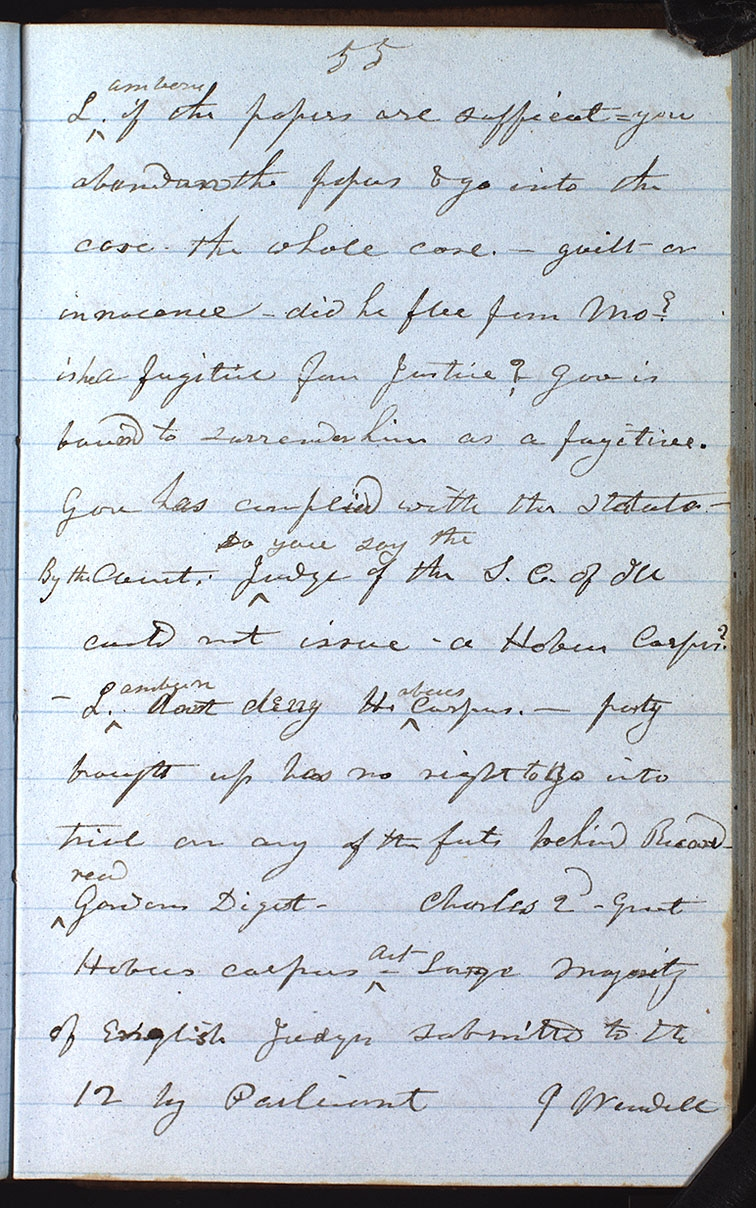 55
L.^amborn if the papers are sufficeat = you
abandan the papers & go into the
case - the whole case. - guilt or
innocence - did he flee from Mo-?
is he a fugitive from Justice? Gov is
bound to surrender him as a fugitive.
Gov has complied with the statute -
do you say the
By the Court: ^ Judge of the S. C. of Ill
could not issue - a Habeus Corpus?
- L.^amborn dont deny H^abeus Corpus. - party
brought up has no right to go into
trial on any of the facts behind Record -
read
^ Gordons Digest - Charles 2d - Great
Habeus corpus ^act - Large majority
of English Judges submitted to the
12 by Parliment 9 Wendell